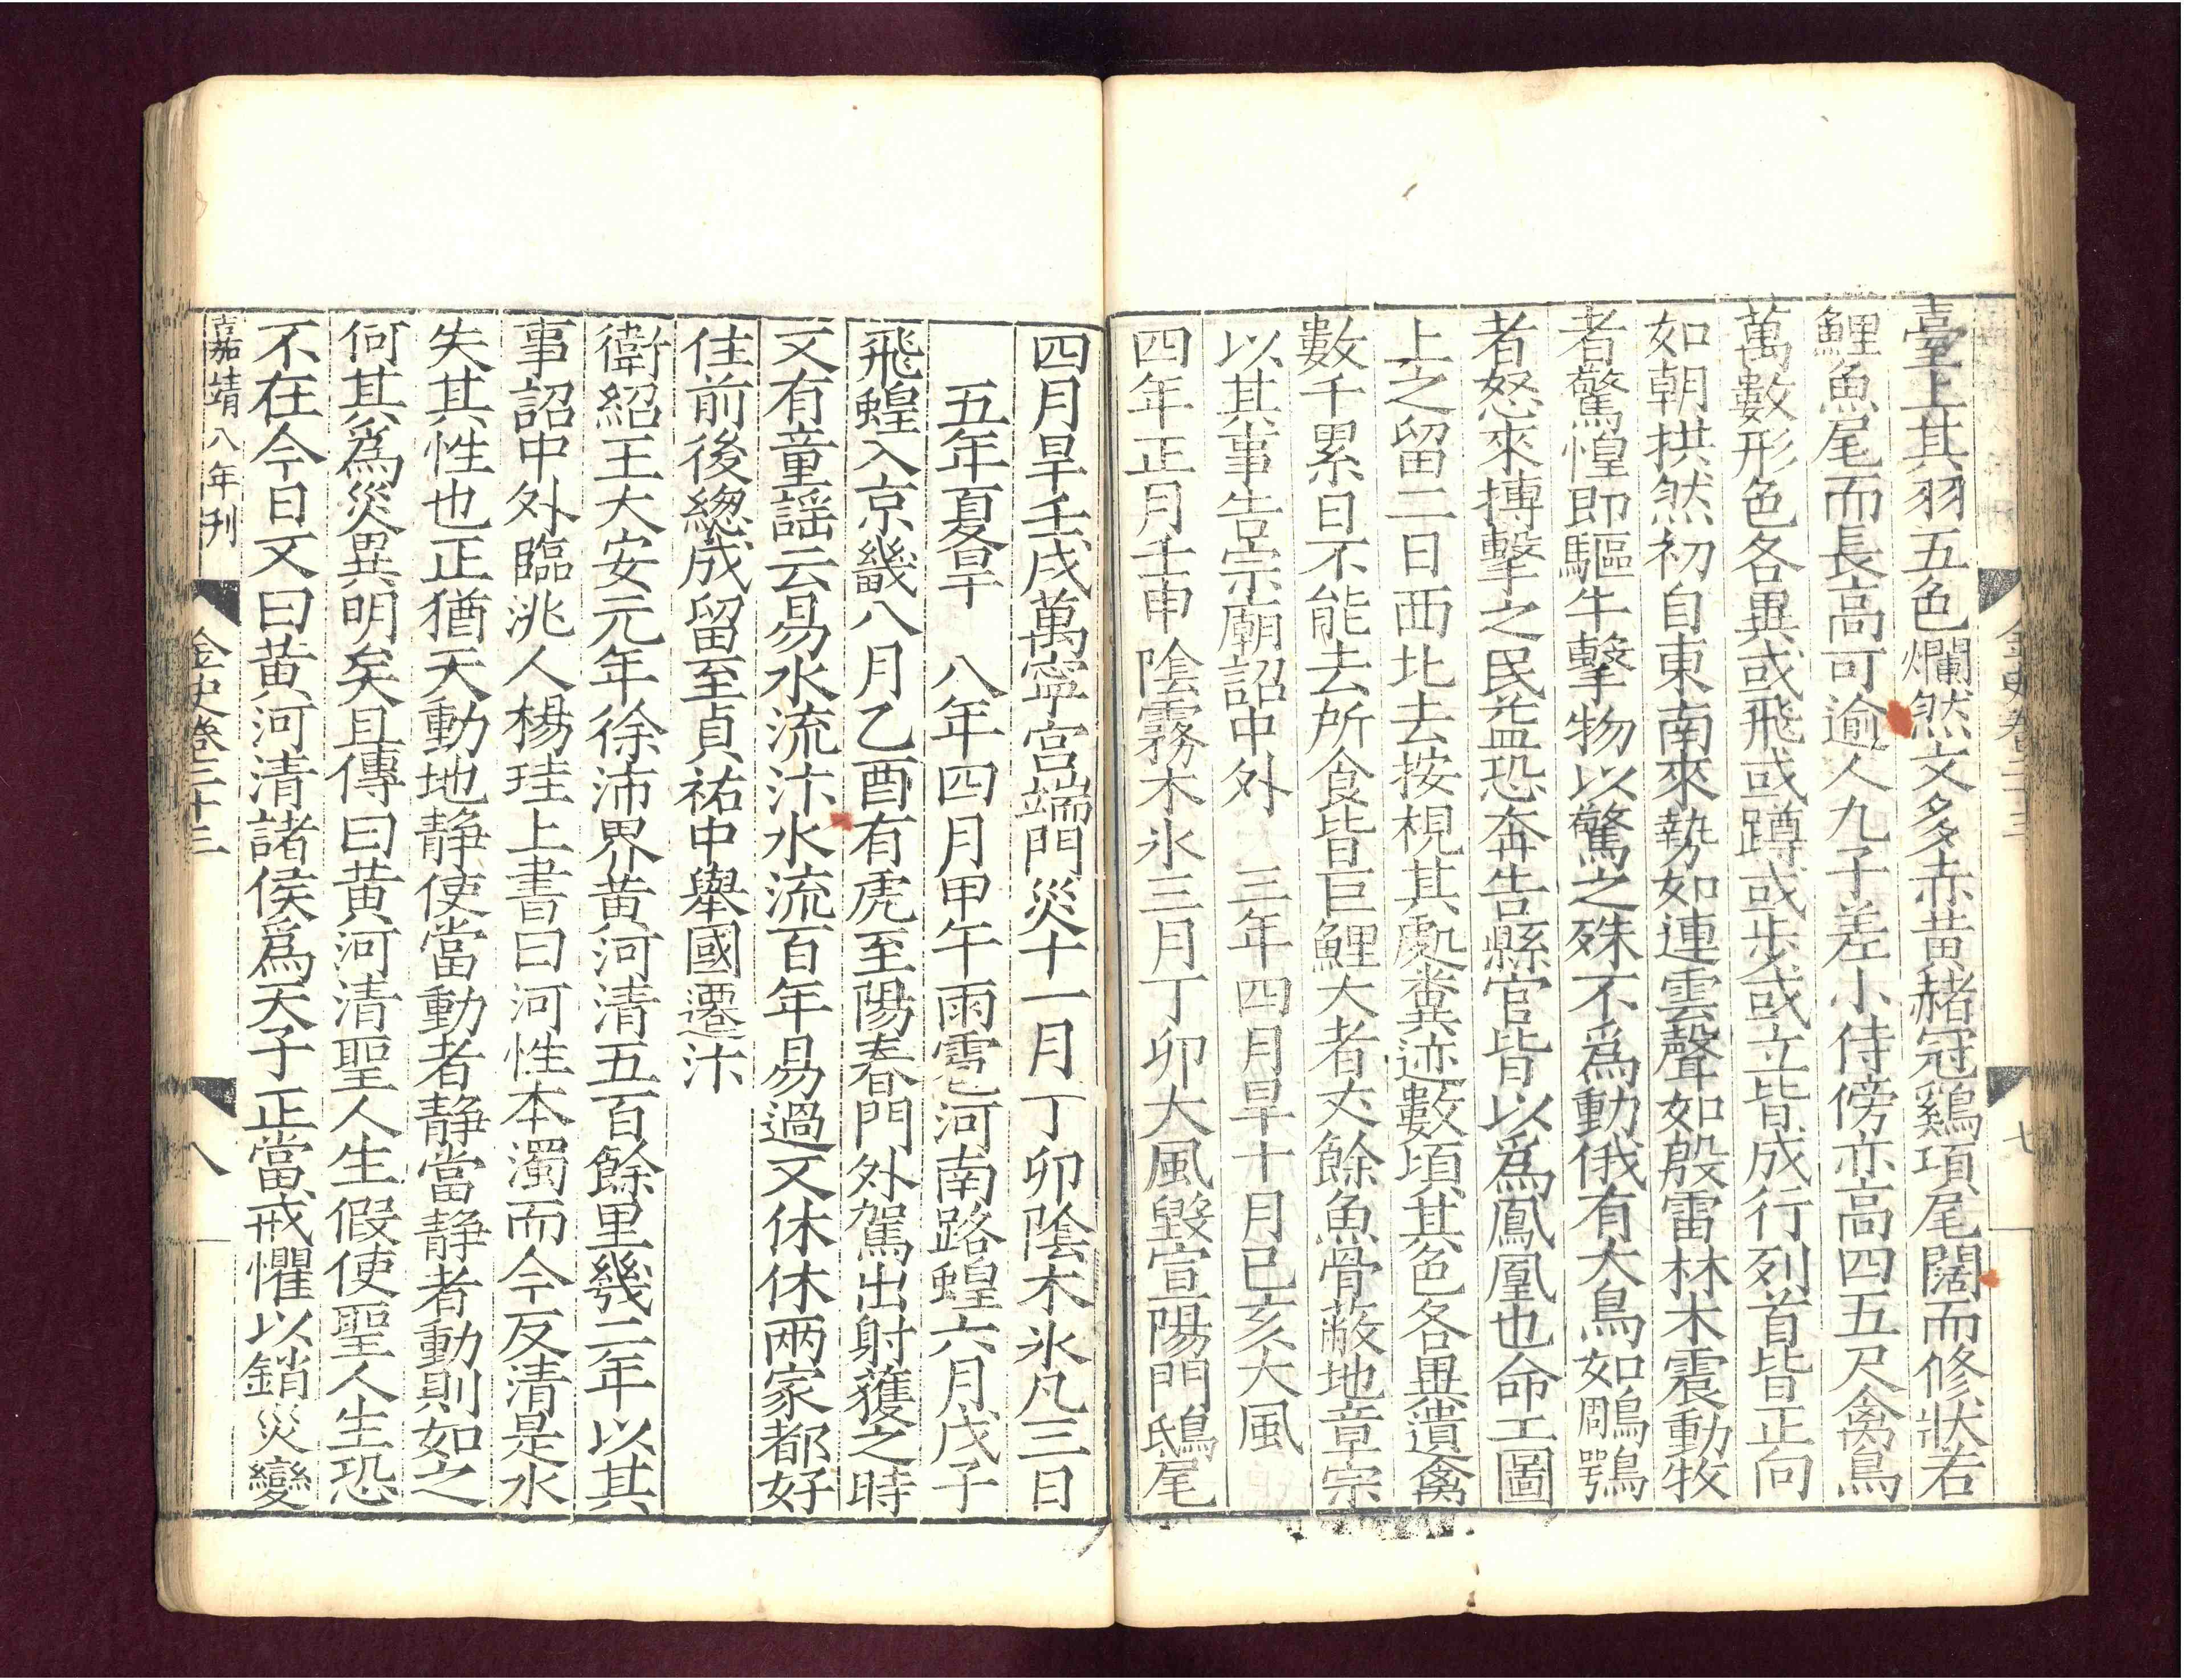 金史卷二十三
七
臺上其羽五色爛然文多赤黃赭冠鷄項尾闊而修狀若
鯉魚尾而長高可逾人九子差小侍傍亦高四五尺禽鳥
萬數形色各異或飛或蹲或步或立皆成行列首皆正向
如朝拱然初自東南來勢如連雲聲如殷雷林木震動牧
者驚惶即驅牛擊物以驚之殊不爲動俄有大鳥如鵰鶚
者怒來摶擊之民益恐奔告縣官皆以爲鳳凰也命工圖
上之留二日西北去按視其處糞迹數頃其色各異遺禽
數千累日不能去所食皆巨鯉大者丈餘魚骨蔽地章宗
以其事告宗廟詔中外　三年四月旱十月己亥大風
四年正月壬申陰霧木氷三月丁卯大風毀宣陽門鴟尾
四月旱壬戌萬寧宮端門災十一月丁卯陰木氷凡三日
五年夏旱　八年四月甲午雨雹河南路蝗六月戊子
飛蝗入京畿八月乙酉有虎至陽春門外駕出射獲之時
又有童謡云易水流汴水流百年易過又休休兩家都好
住前後總成留至貞祐中舉國遷汴
衛紹王大安元年徐沛界黃河清五百餘里幾二年以其
事詔中外臨洮人楊珪上書曰河性本濁而今反清是水
失其性也正猶天動地靜使當動者靜當靜者動則如之
何其爲災異明矣且傳曰黃河清聖人生假使聖人生恐
不在今日又曰黃河清諸侯爲天子正當戒懼以銷災變
嘉靖八年刊
金史卷二十三
八